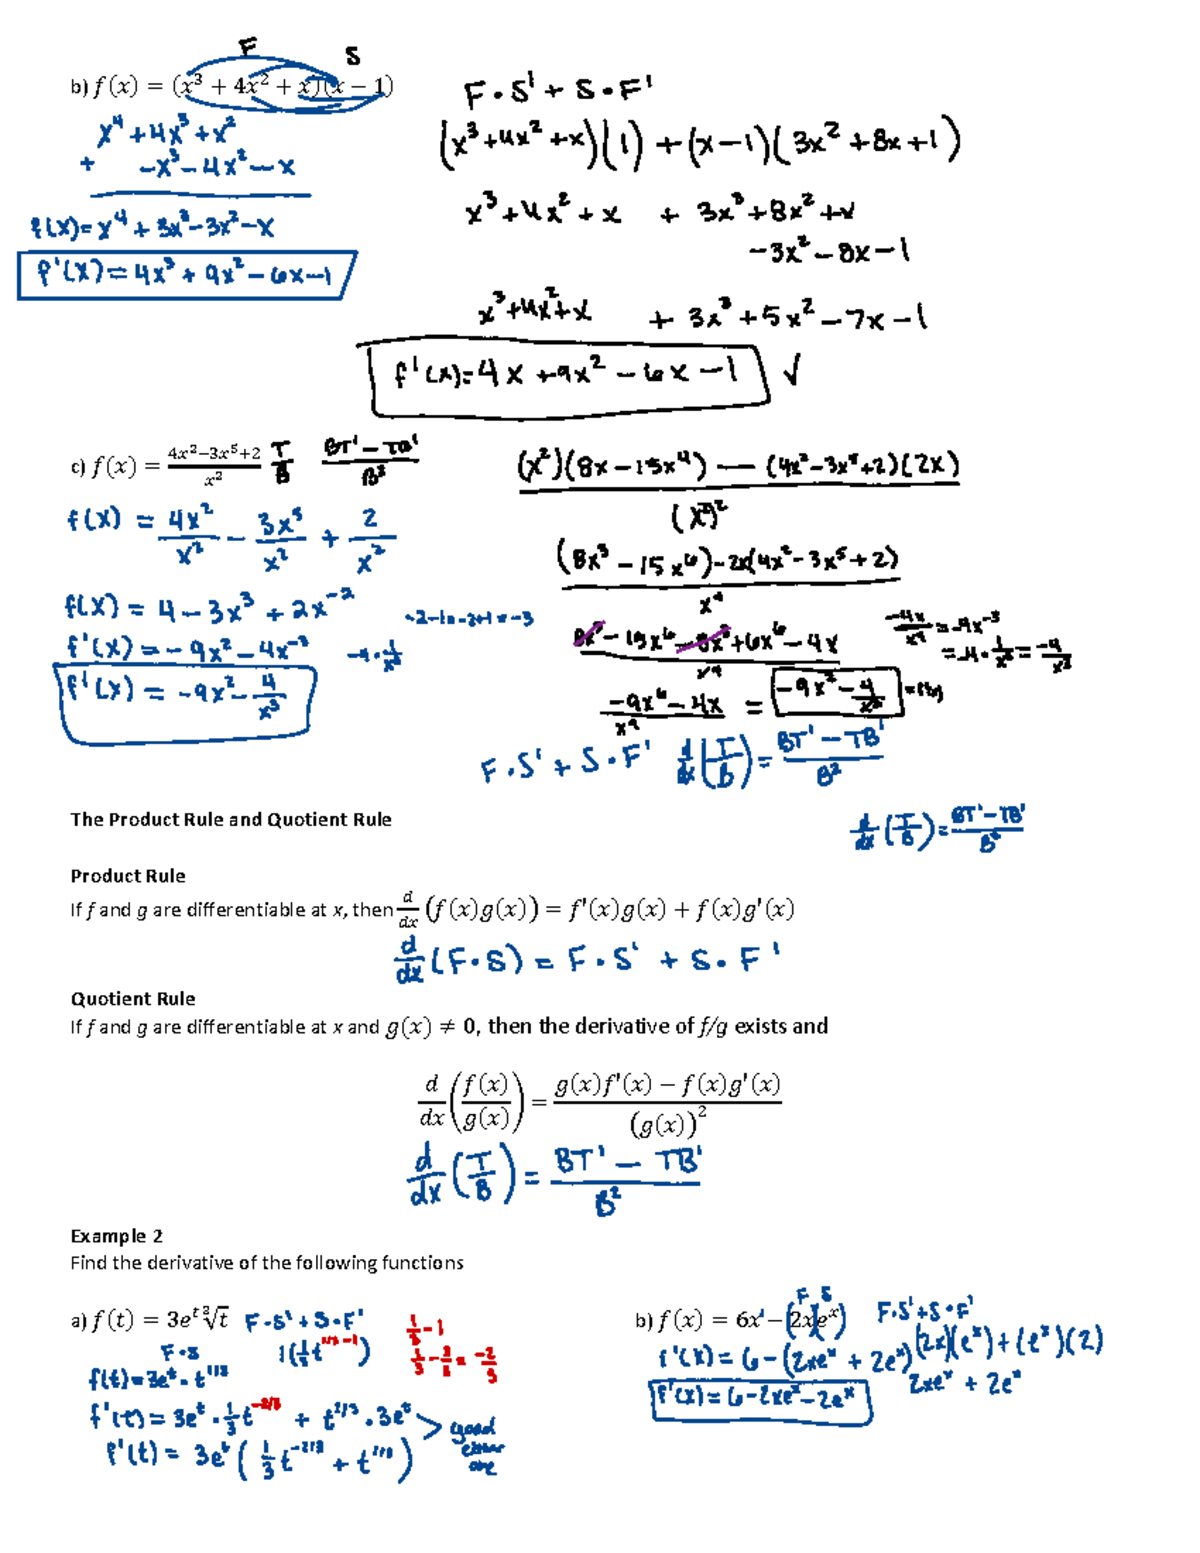 F S
b) f(x) = (x³ + 4x² + x)(x − 1)
x⁴ + 4x³ + x²
+ −x³ − 4x² − x
f(x) = x⁴ + 3x³ − 3x² − x
f'(x) = 4x³ + 9x² − 6x − 1
F · S' + S · F'
(x³ + 4x² + x)(1) + (x − 1)(3x² + 8x + 1)
x³ + 4x² + x + 3x³ + 8x² + x
− 3x² − 8x − 1
x³ + 4x² + x + 3x³ + 5x² − 7x − 1
f'(x) = 4x + 9x² − 6x − 1 √
c) f(x) = (4x² − 3x⁵ + 2)/x² T/B (BT' − TB')/B²
f(x) = 4x²/x² − 3x⁵/x² + 2/x²
f(x) = 4 − 3x³ + 2x⁻²
f'(x) = −9x² − 4x⁻³ −4 · 1/x³
f'(x) = −9x² − 4/x³
((x²)(8x − 15x⁴) − (4x² − 3x⁵ + 2)(2x))/(x²)²
((8x³ − 15x⁶) − 2x(4x² − 3x⁵ + 2))/x⁴
(8x³ − 15x⁶ − 8x³ + 6x⁶ − 4x)/x⁴
−4x/x⁴ = −4x⁻³
= −4 · 1/x³ = −4/x³
(−9x⁶ − 4x)/x⁴ = −9x² − 4/x³ = f'(x)
F · S' + S · F' d/dx (T/B) = (BT' − TB')/B²
The Product Rule and Quotient Rule
d/dx (T/B) = (BT' − TB')/B²
Product Rule
If f and g are differentiable at x, then d/dx (f(x)g(x)) = f'(x)g(x) + f(x)g'(x)
d/dx (F · S) = F · S' + S · F'
Quotient Rule
If f and g are differentiable at x and g(x) ≠ 0, then the derivative of f/g exists and
d/dx (f(x)/g(x)) = (g(x)f'(x) − f(x)g'(x))/(g(x))²
d/dx (T/B) = (BT' − TB')/B²
Example 2
Find the derivative of the following functions
a) f(t) = 3eᵗ ∛t F · S' + S · F'
F · S 1(1/3 t^(1/3 − 1))
1/3 − 1
1/3 − 3/3 = −2/3
f(t) = 3eᵗ · t^(1/3)
f'(t) = 3eᵗ · 1/3 t^(−2/3) + t^(1/3) · 3eᵗ > good
f'(t) = 3eᵗ (1/3 t^(−2/3) + t^(1/3)) either one
F S
b) f(x) = 6x¹ − (2x)(eˣ) F · S' + S · F'
f'(x) = 6 − (2xeˣ + 2eˣ) (2x)(eˣ) + (eˣ)(2)
2xeˣ + 2eˣ
f'(x) = 6 − 2xeˣ − 2eˣ